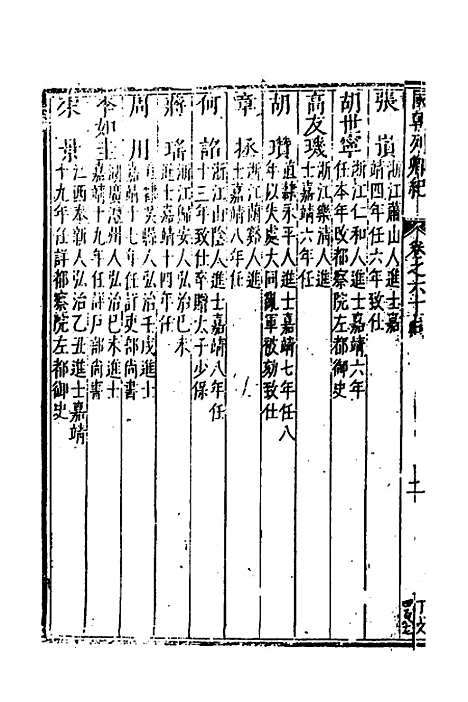 國朝列卿紀 卷之六十
十二
張嵿 浙江蕭山人進士嘉
靖四年任六年致仕
胡世寧 浙江仁和人進士嘉靖六年
任本年改都察院左都御史
高友璣 浙江樂清人進
士嘉靖六年任
胡瓚 直隸永平人進士嘉靖七年任八
年以失處大同亂軍被劾致仕
章拯 浙江蘭谿人進
士嘉靖八年任
何詔 浙江山陰人進士嘉靖八年任
十三年致仕卒贈太子少保
蔣瑤 浙江歸安人弘治己未
進士嘉靖十四年任
周用 直隸吳江人弘治壬戌進士
嘉靖十七年任詳吏部尚書
李如圭 湖廣澧州人弘治己未進士
嘉靖十九年任詳戶部尚書
宋景 江西奉新人弘治乙丑進士嘉靖
十九年任詳都察院左都御史